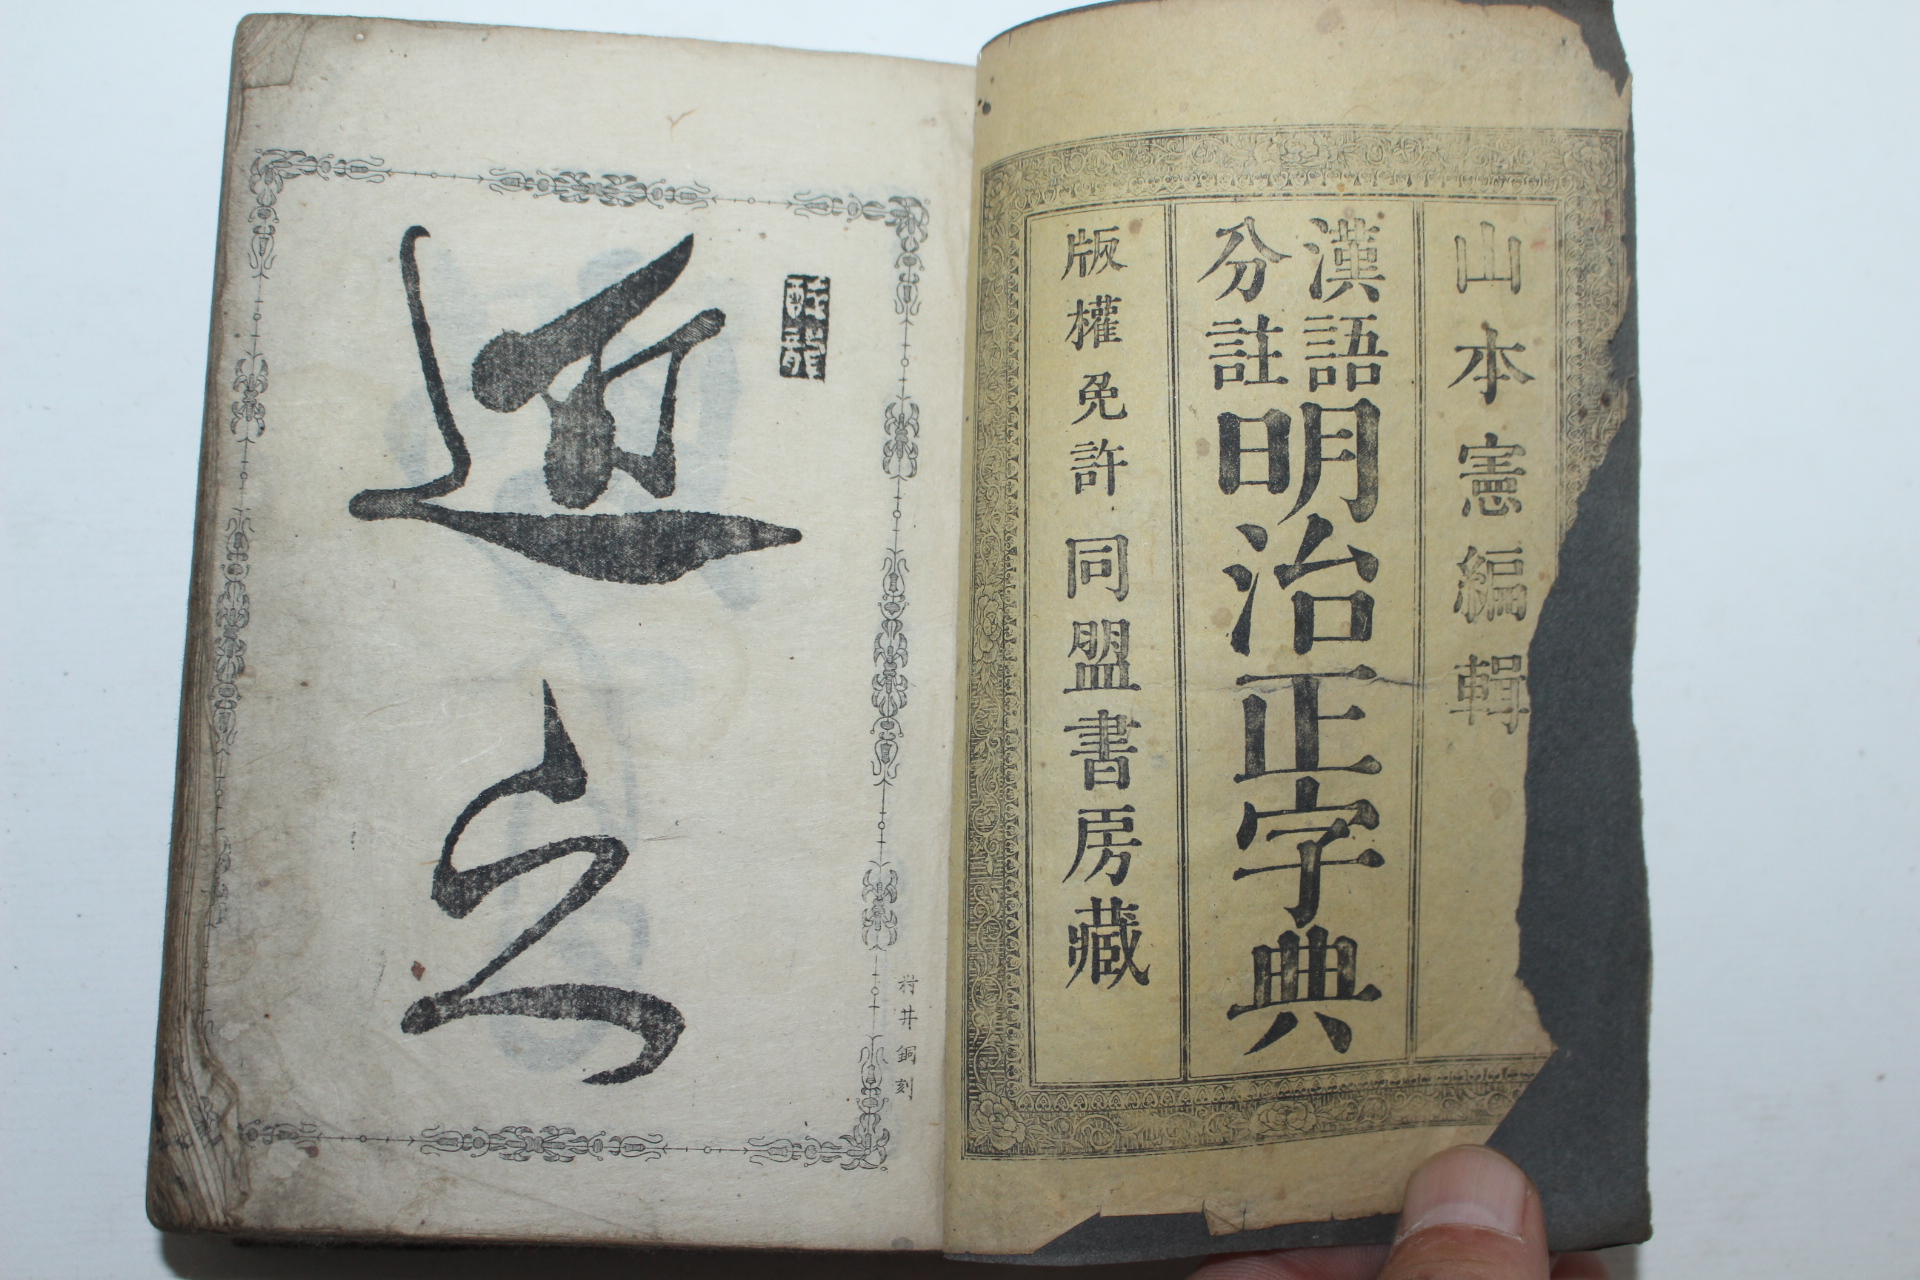 山本憲編輯
漢語
分註
明治正字典
版權免許 同盟書房藏
村井銅刻